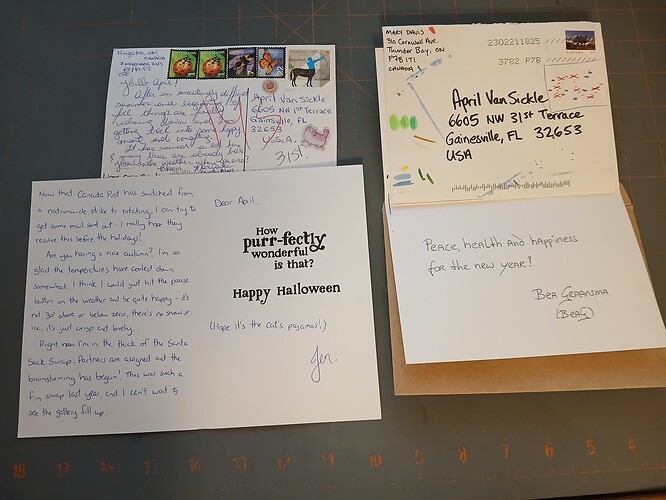 Kingston, ON,
CANADA
7 NOVEMBER
Hello April!
After an
summer and
feel things are
calming down and
getting back into
and
It has
many trees are already
the weather
April Van Sickle
6605 NW 1st Terrace
Gainsville, FL
32653
USA.
31st.
Now that Canada Post has switched from
a nationwide strike to rotating, I can try to
get some mail sent out - I really hope they
resolve this before the holidays!
Are you having a nice autumn? I'm so
glad the temperatures have cooled down
somewhat. I think I could just hit the pause
button on the weather and be quite happy - it's
not 30° above or below zero, there's no snow or
ice, it's just crisp and lovely.
Right now I'm in the thick of the Santa
Sack Swap. Partners are assigned and the
brainstorming has begun! This was such a
fun swap last year, and I can't wait to
see the gallery fill up.
Dear April,
How
purr-fectly
wonderful
is that?
Happy Halloween
(Hope it's the cat's pajamas!)
Jen.
MARY DAVIS
310 Cornwall Ave.
Thunder Bay, ON
P7B 1T1
CANADA
2302211825
3782 P7B
April Van Sickle
6605 NW 31st Terrace
Gainesville, FL 32653
USA
Peace, health and happiness
for the new year!
Bea Graansma
(BeaG)
18 17 12 11 10 9 8 7 6 5 4